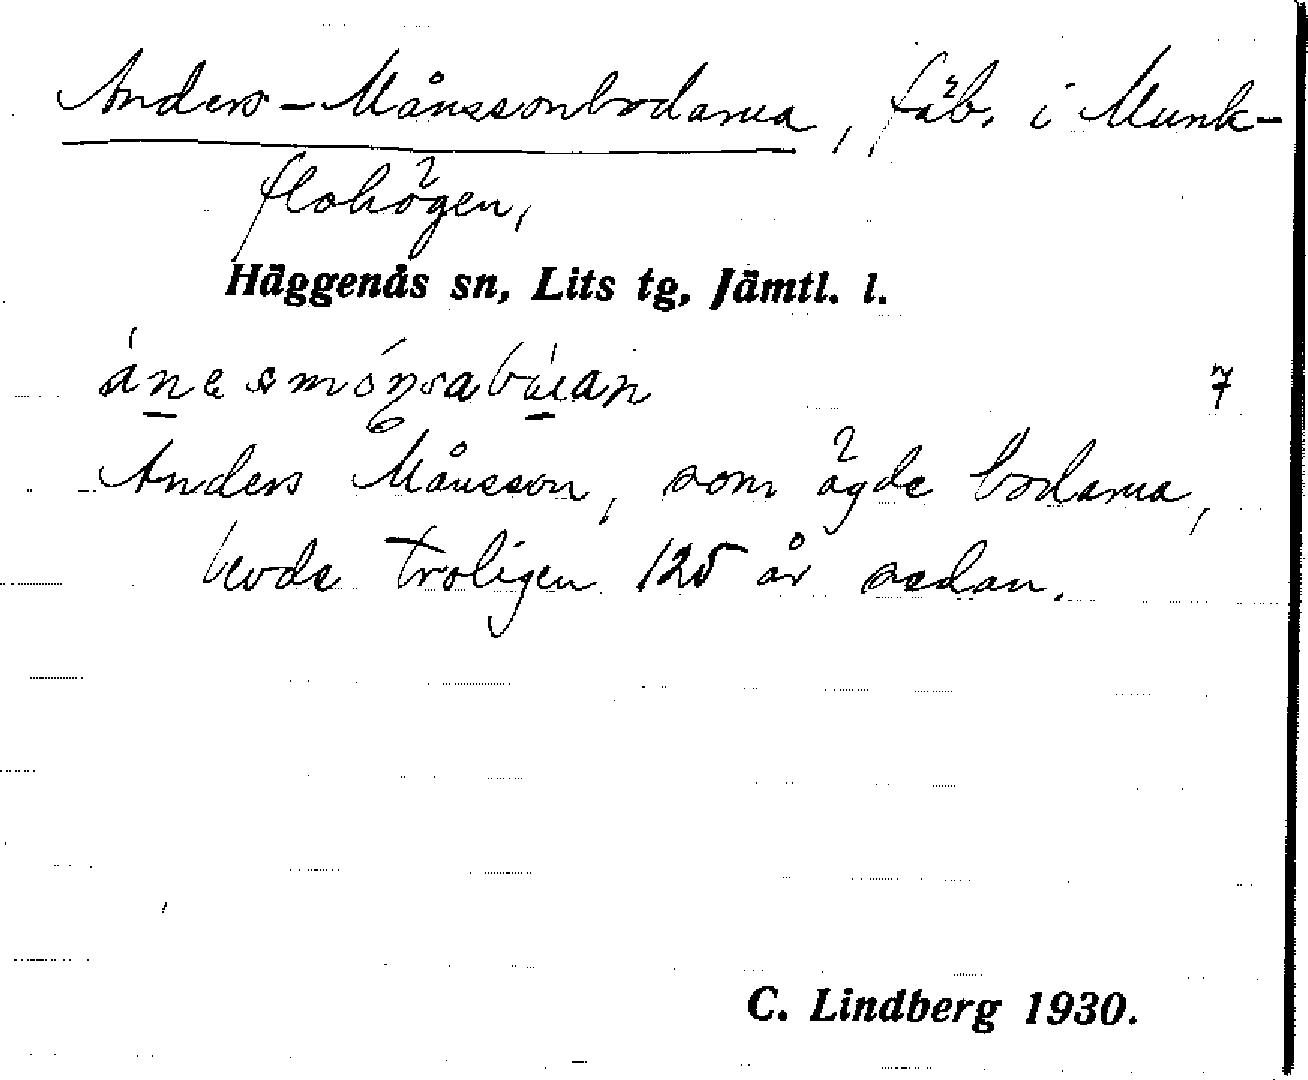 Anders-Månssonbodarna, fäb. i Munk-
flohögen,
Häggenås sn, Lits tg, Jämtl. l.
7
Anders Månsson, som ägde bodarna,
levde troligen 125 år sedan.
C. Lindberg 1930.